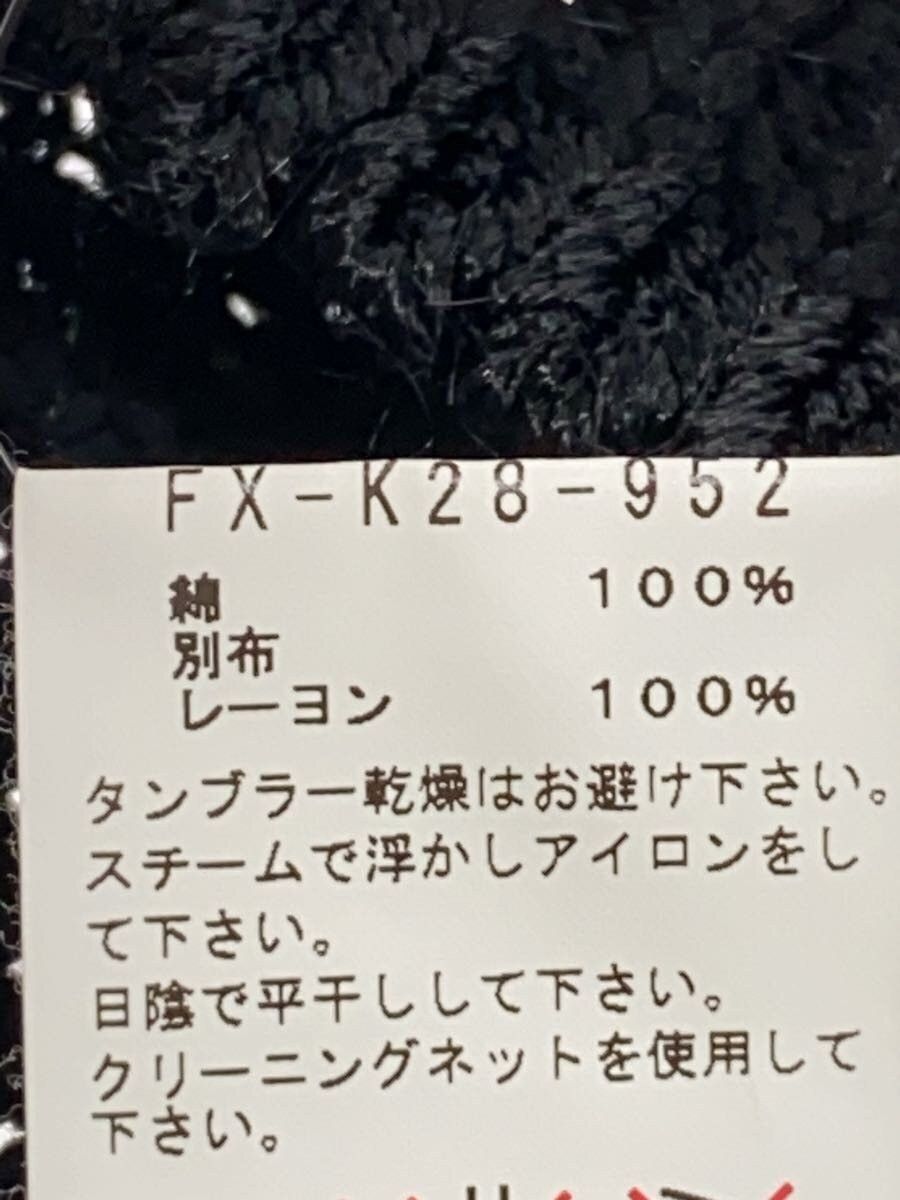 FX-K28-952
綿 100%
別布
レーヨン 100%
タンブラー乾燥はお避け下さい。
スチームで浮かしアイロンをし
て下さい。
日陰で平干しして下さい。
クリーニングネットを使用して
下さい。